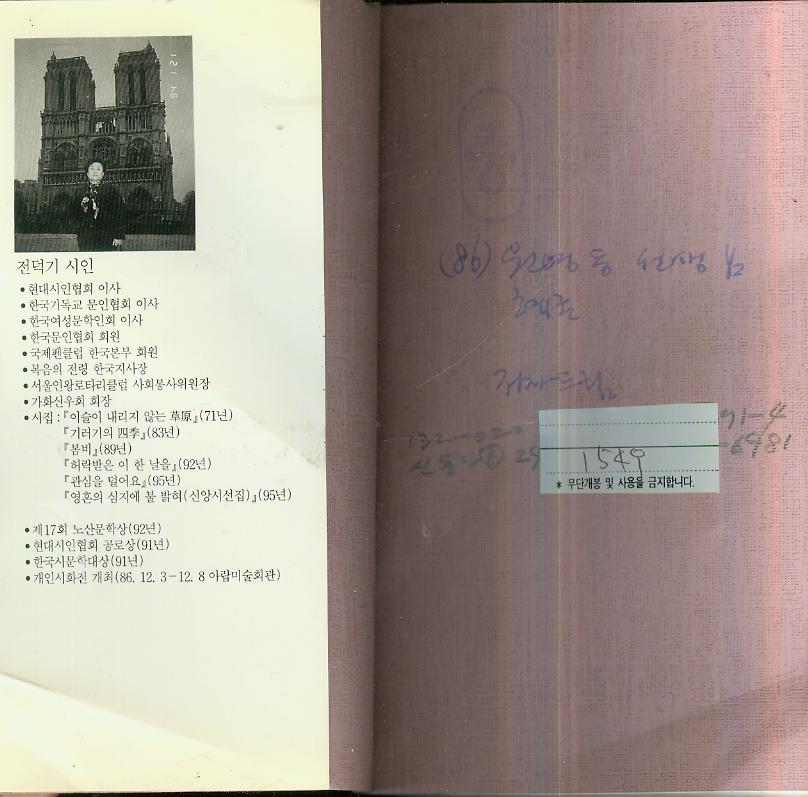 94 1 21
전덕기 시인
• 현대시인협회 이사
• 한국기독교 문인협회 이사
• 한국여성문학인회 이사
• 한국문인협회 회원
• 국제펜클럽 한국본부 회원
• 복음의 전령 한국지사장
• 서울인왕로타리클럽 사회봉사위원장
• 가화신우회 회장
• 시집 : 『이슬이 내리지 않는 草原』(71년)
『기러기의 四季』(83년)
『봄비』(89년)
『허락받은 이 한 날을』(92년)
『관심을 덜어요』(95년)
『영혼의 심지에 불 밝혀(신앙시선집)』(95년)
• 제17회 노산문학상(92년)
• 현대시인협회 공로상(91년)
• 한국시문학대상(91년)
• 개인시화전 개최(86. 12. 3－12. 8 아랍미술회관)
(86) 선생님
혜존
저자드림
132-020 91-4
29 -6981
1549
* 무단개봉 및 사용을 금지합니다.